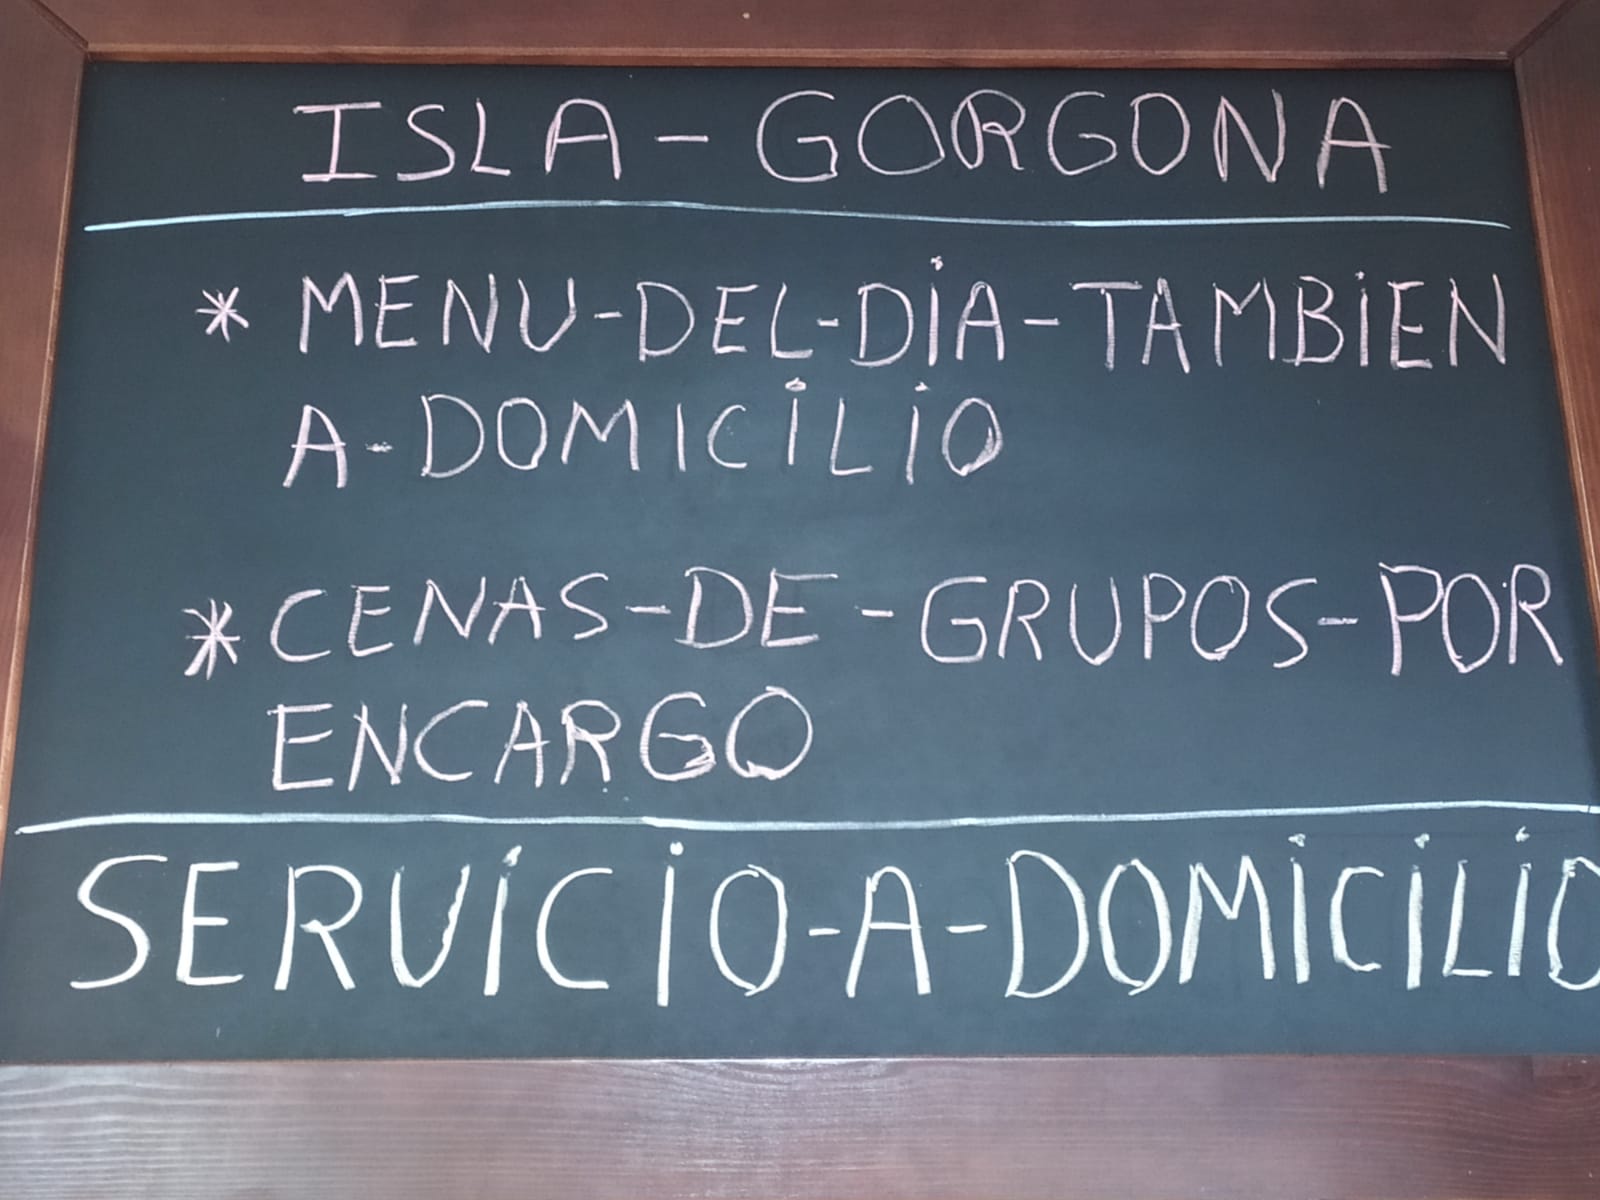 ISLA - GORGONA
* MENU-DEL-DiA-TAMBiEN
A-DOMICiLiO
* CENAS-DE-GRUPOS-POR
ENCARGO
SERViCiO-A-DOMiCiLiO